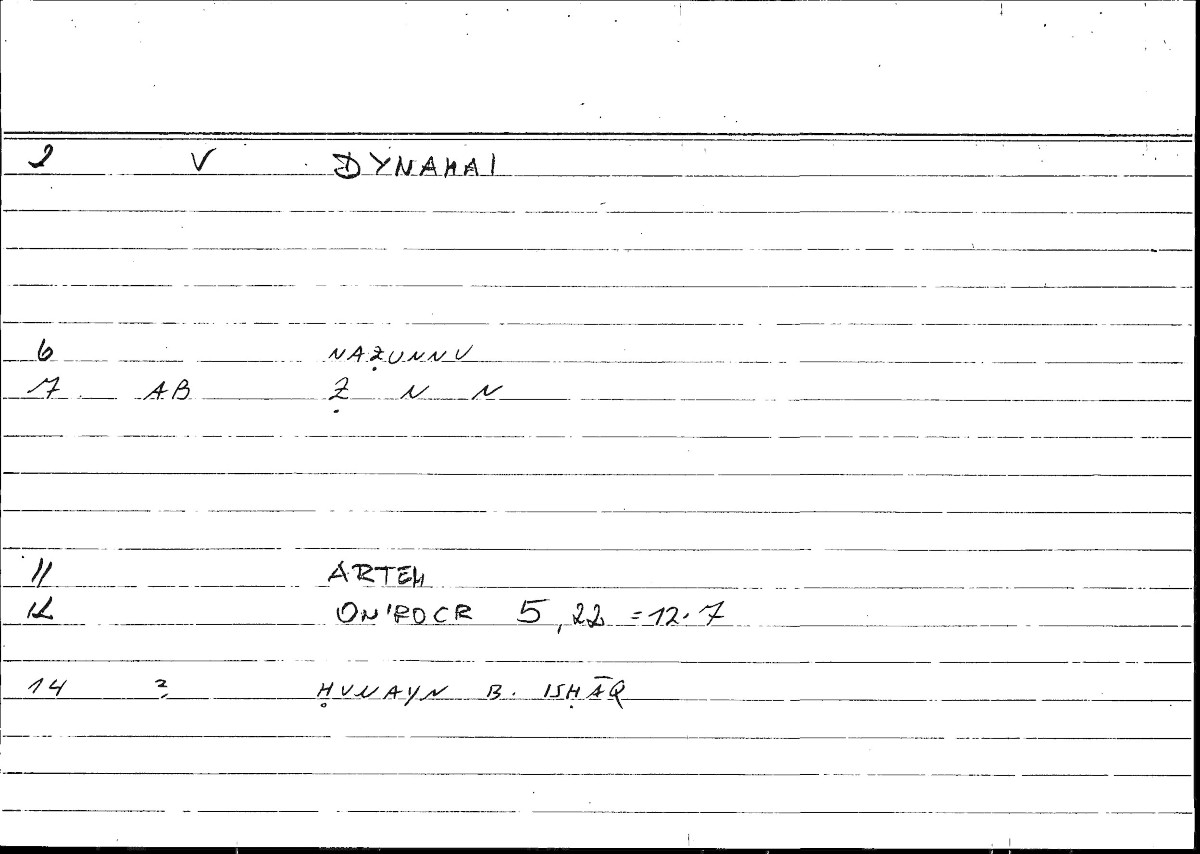 2 V DYNAMAI
6 NAẒUNNU
7 AB Ẓ N N
11 ARTEM
12 ONIROCR 5,22 = 12.7
14 2, ḤUNAYN B. ISḤĀQ